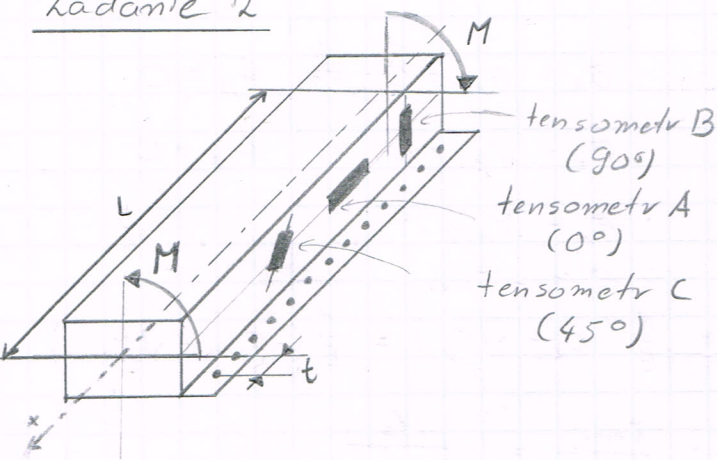 Zadanie 2
M
tensometr B
(90°)
tensometr A
(0°)
L
M
tensometr C
(45°)
t
x